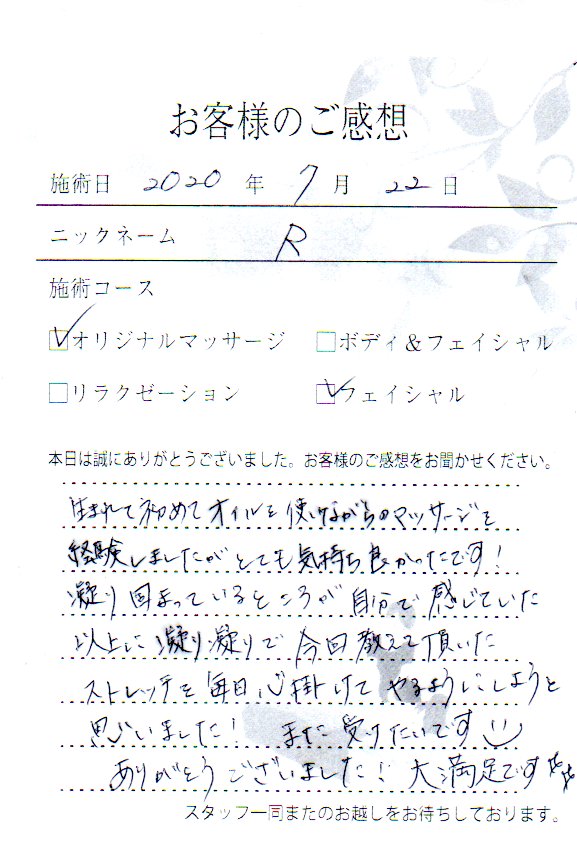 お客様のご感想
施術日 2020 年 7 月 22 日
ニックネーム R
施術コース
オリジナルマッサージ ボディ&フェイシャル
リラクゼーション フェイシャル
本日は誠にありがとうございました。お客様のご感想をお聞かせください。
生まれて初めてオイルを使いながらのマッサージを
経験しましたがとても気持ち良かったです!
凝り固まっているところが自分で感じていた
以上に凝り凝りで今回教えて頂いた
ストレッチを毎日心掛けてやるようにしようと
思いました! また受けたいです
ありがとうございました! 大満足です☆☆
スタッフ一同またのお越しをお待ちしております。